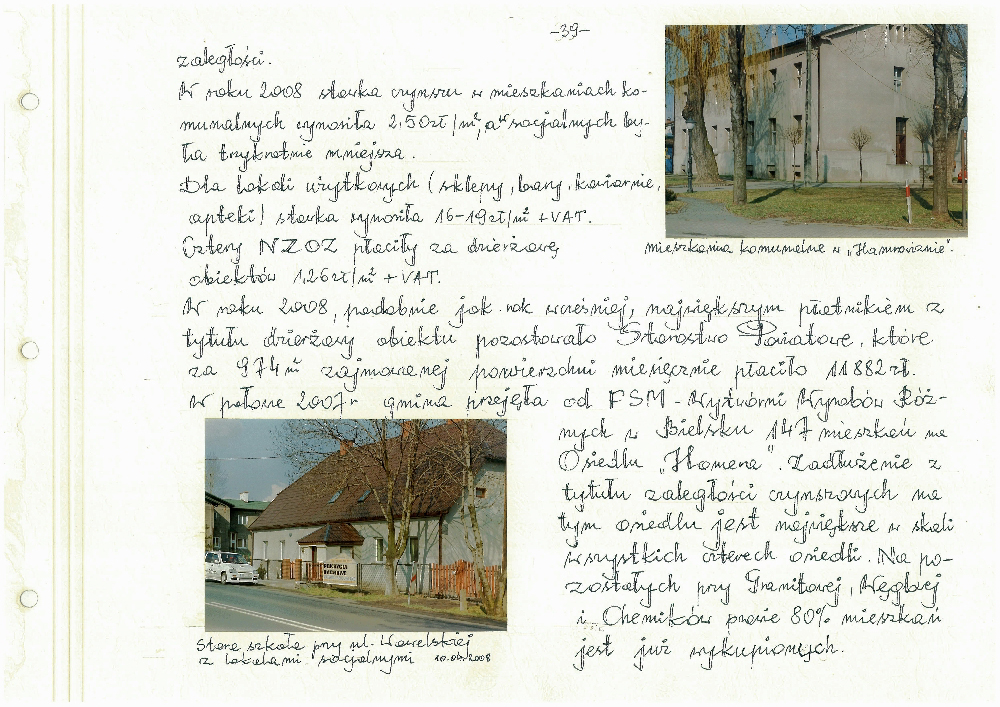 -39-
zaległości.
W roku 2008 stawka czynszu w mieszkaniach ko-
munalnych wynosiła 2,50zł/m², a w socjalnych by-
ła trzykrotnie mniejsza.
Dla lokali użytkowych (sklepy, bary, kawiarnie,
apteki) stawka wynosiła 16-19zł/m² + VAT.
Cztery NZOZ płaciły za dzierżawę
obiektów 1,26zł/m² + VAT.
mieszkania komunalne w "Hamrowiźnie".
W roku 2008, podobnie jak rok wcześniej, największym płatnikiem z
tytułu dzierżawy obiektu pozostawało Starostwo Powiatowe, które
za 974m² zajmowanej powierzchni miesięcznie płaciło 11882zł.
W połowie 2007r gmina przejęła od FSM - Wytwórni Wyrobów Róż-
nych w Bielsku 147 mieszkań na
Osiedlu "Homera". Zadłużenie z
tytułu zaległości czynszowych na
tym osiedlu jest największe w skali
wszystkich czterech osiedli. Na po-
zostałych przy Granitowej, Węglowej
i Chemików prawie 80% mieszkań
jest już wykupionych.
Stara szkoła przy ul. Wawelskiej
z lokalami socjalnymi 2008